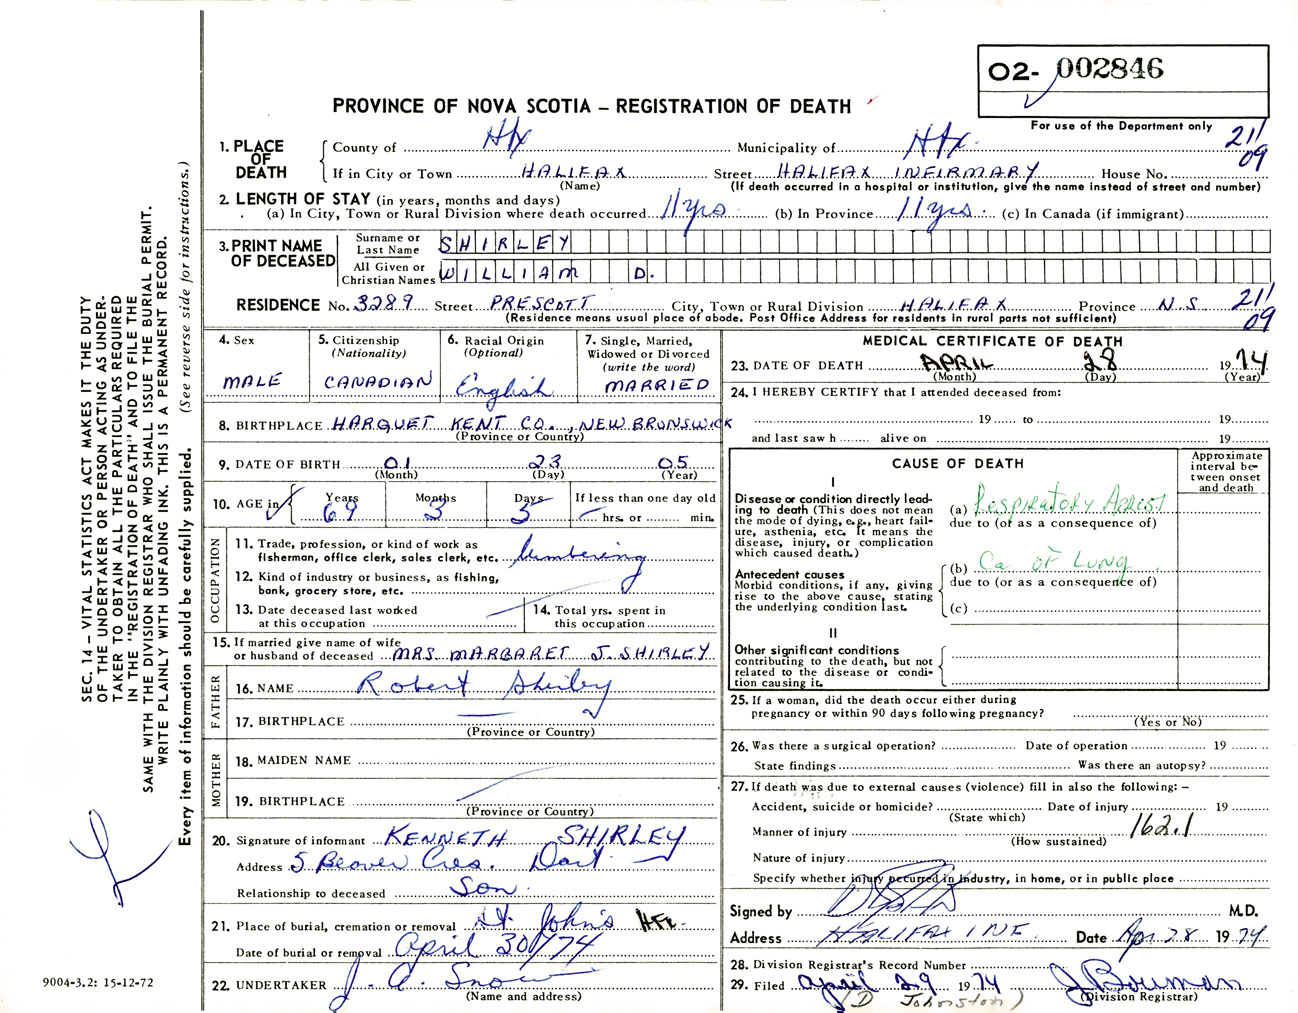 O2- 002846
PROVINCE OF NOVA SCOTIA – REGISTRATION OF DEATH
For use of the Department only
21/
09
1. PLACE OF DEATH
County of Hfx Municipality of Hfx.
If in City or Town HALIFAX Street HALIFAX INFIRMARY House No.
(Name) (If death occurred in a hospital or institution, give the name instead of street and number)
2. LENGTH OF STAY (in years, months and days)
(a) In City, Town or Rural Division where death occurred 11 yrs (b) In Province 11 yrs. (c) In Canada (if immigrant)
3. PRINT NAME OF DECEASED
Surname or Last Name SHIRLEY
All Given or Christian Names WILLIAM D.
RESIDENCE No. 3289 Street PRESCOTT City, Town or Rural Division HALIFAX Province N.S 21/
09
(Residence means usual place of abode. Post Office Address for residents in rural parts not sufficient)
4. Sex
MALE
5. Citizenship
(Nationality)
CANADIAN
6. Racial Origin
(Optional)
English
7. Single, Married,
Widowed or Divorced
(write the word)
MARRIED
8. BIRTHPLACE HARQUET KENT CO., NEW BRUNSWICK
(Province or Country)
9. DATE OF BIRTH 01 23 05
(Month) (Day) (Year)
10. AGE in
Years Months Days If less than one day old
69 3 5 hrs. or min.
OCCUPATION
11. Trade, profession, or kind of work as
fisherman, office clerk, sales clerk, etc. lumbering
12. Kind of industry or business, as fishing,
bank, grocery store, etc.
13. Date deceased last worked
at this occupation
14. Total yrs. spent in
this occupation
15. If married give name of wife
or husband of deceased MRS. MARGARET J. SHIRLEY
FATHER
16. NAME Robert Shirley
17. BIRTHPLACE
(Province or Country)
MOTHER
18. MAIDEN NAME
19. BIRTHPLACE
(Province or Country)
20. Signature of informant KENNETH SHIRLEY
Address 5 Beaver Cres. Dart
Relationship to deceased Son
21. Place of burial, cremation or removal St. John's Hfx.
Date of burial or removal April 30/74
22. UNDERTAKER J. A. Snow
(Name and address)
MEDICAL CERTIFICATE OF DEATH
23. DATE OF DEATH APRIL 28 1974
(Month) (Day) (Year)
24. I HEREBY CERTIFY that I attended deceased from:
19 to 19
and last saw h alive on 19
CAUSE OF DEATH
Approximate
interval be-
tween onset
and death
I
Disease or condition directly lead-
ing to death (This does not mean
the mode of dying, e.g., heart fail-
ure, asthenia, etc. It means the
disease, injury, or complication
which caused death.)
(a) Respiratory Arrest
due to (or as a consequence of)
Antecedent causes
Morbid conditions, if any, giving
rise to the above cause, stating
the underlying condition last.
(b) Ca of Lung
due to (or as a consequence of)
(c)
II
Other significant conditions
contributing to the death, but not
related to the disease or condi-
tion causing it.
25. If a woman, did the death occur either during
pregnancy or within 90 days following pregnancy?
(Yes or No)
26. Was there a surgical operation? Date of operation 19
State findings Was there an autopsy?
27. If death was due to external causes (violence) fill in also the following: –
Accident, suicide or homicide? Date of injury 19
(State which)
Manner of injury 162.1
(How sustained)
Nature of injury
Specify whether injury occurred in industry, in home, or in public place
Signed by M.D.
Address HALIFAX INF. Date Apr 28 1974
28. Division Registrar's Record Number
29. Filed April 29 1974 J Bowman
(D Johnston) (Division Registrar)
SEC. 14 – VITAL STATISTICS ACT MAKES IT THE DUTY
OF THE UNDERTAKER OR PERSON ACTING AS UNDER-
TAKER TO OBTAIN ALL THE PARTICULARS REQUIRED
IN THE "REGISTRATION OF DEATH" AND TO FILE THE
SAME WITH THE DIVISION REGISTRAR WHO SHALL ISSUE THE BURIAL PERMIT.
WRITE PLAINLY WITH UNFADING INK. THIS IS A PERMANENT RECORD.
Every item of information should be carefully supplied. (See reverse side for instructions.)
9004-3.2: 15-12-72